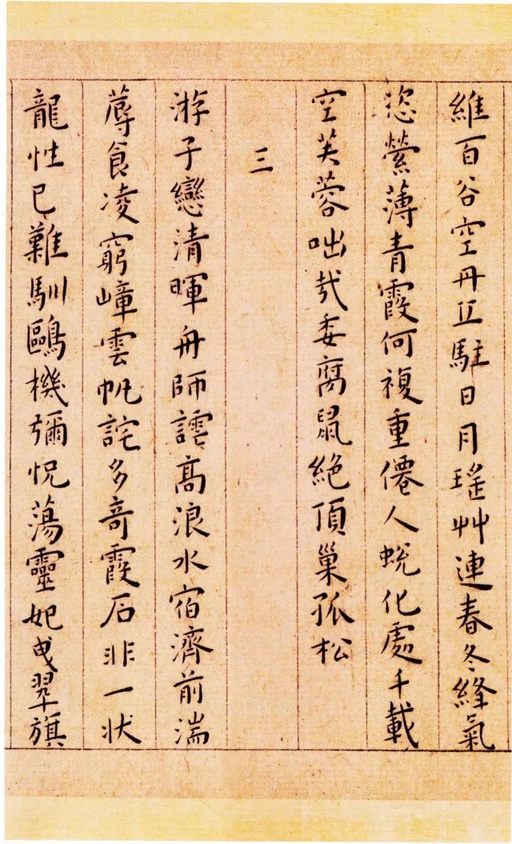 維百谷空丹丘駐日月瑤艸連春冬絳氣
恣縈薄青霞何複重僊人蛻化處千載
空芙蓉咄哉委腐鼠絕頂巢孤松
三
游子戀清暉舟師謔高浪水宿濟前湍
蓐食凌窮嶂雲帆詫多奇霞石非一狀
龍性已難馴鷗機彌怳蕩靈妃曳翠旗